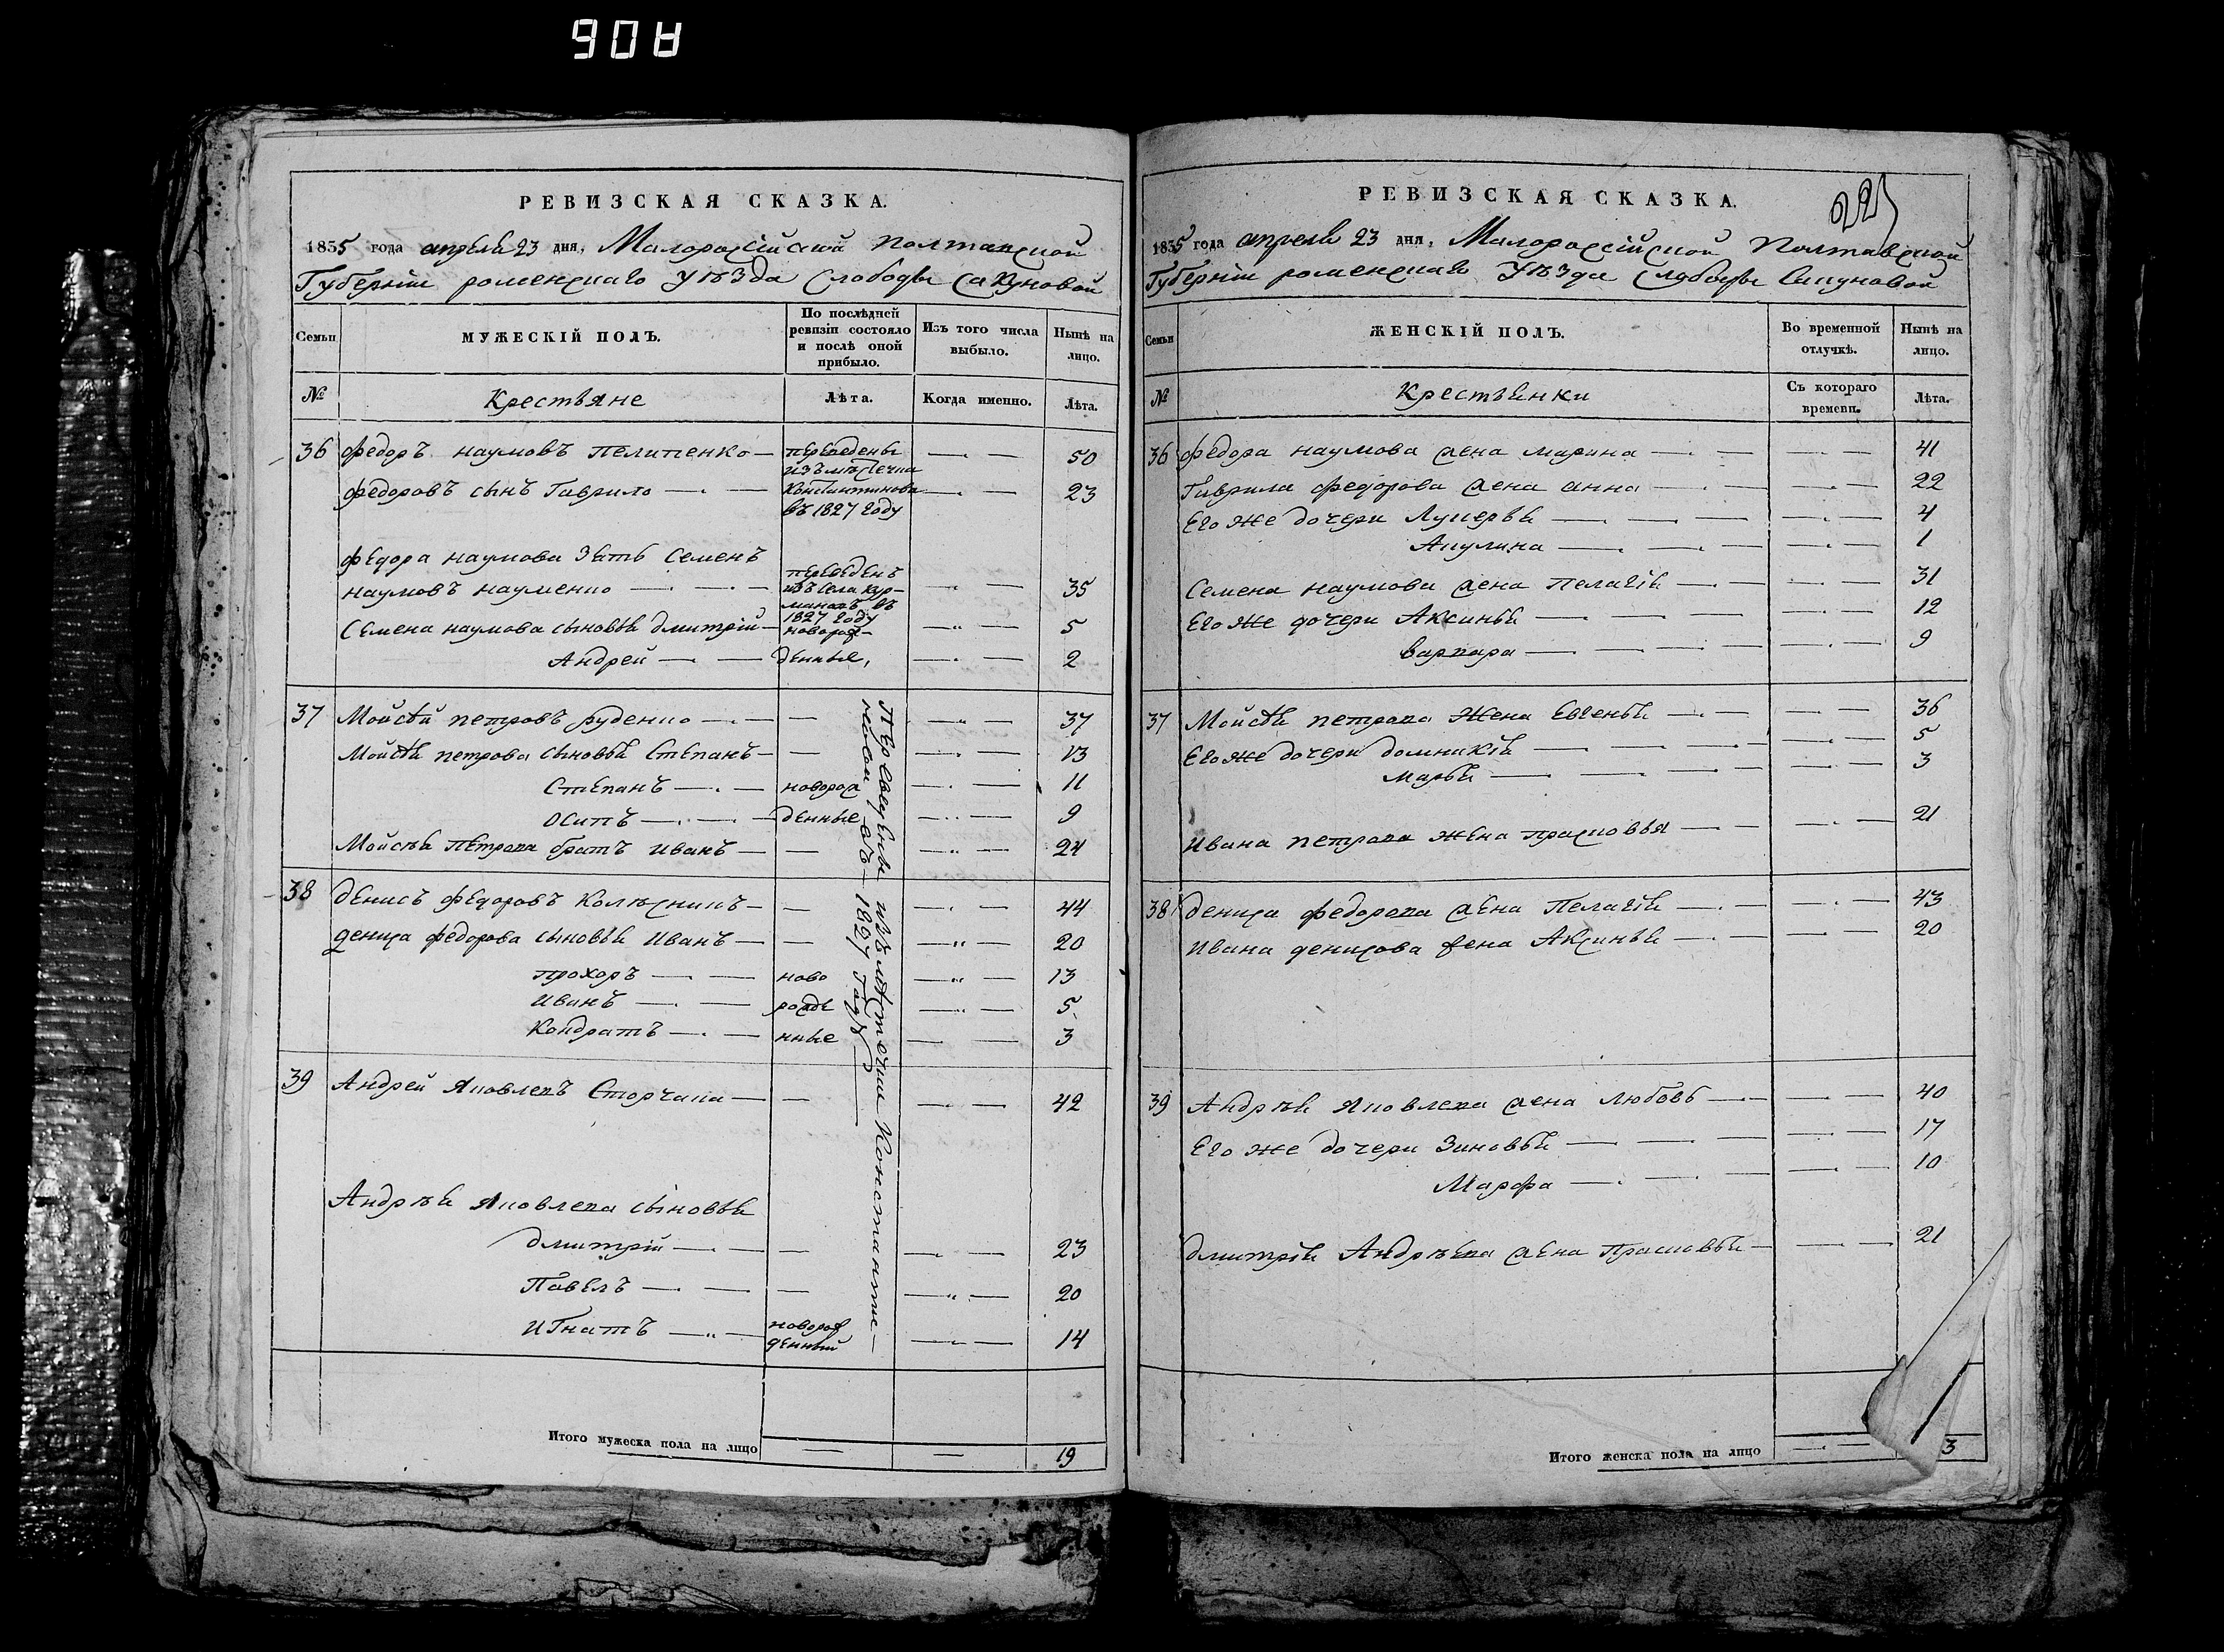 РЕВИЗСКАЯ СКАЗКА.
1835 года апреля 23 дня, Малороссійской Полтавской
Губерніи роменскаго уѣзда Слободы Сакуновой
Семьи
МУЖЕСКІЙ ПОЛЪ.
По послѣдней ревизіи состояло и послѣ оной прибыло.
Изъ того числа выбыло.
Нынѣ на лицо.
№
Крестьяне
Лѣта.
Когда именно.
Лѣта.
36 Федоръ наумовъ Пелипенко — переведены — 50
изъ мѣстечка
федоровъ сынъ Гаврило — Константинова — 23
въ 1827 году
федора наумова зять Семенъ
наумовъ науменко — переведенъ — 35
изъ села Кур-
манахъ въ
1827 году
Семена наумова сыновья дмитрій — новорож- — 5
Андрей — денные, — 2
37 Мойсѣй петровъ руденко — — — 37
Мойсѣя петрова сыновья Степанъ — — — 13
Степанъ — новорож — 11
Осипъ — денные — 9
Мойсѣя Петрова братъ Иванъ — — — 24
38 денисъ федоровъ Колѣсникъ — — — 44
дениса федорова сыновья Иванъ — — — 20
прохоръ — ново — 13
Иванъ — рожде — 5
Кондратъ — нные — 3
39 Андрей Яковлевъ Сторчака — — — 42
Андрѣя Яковлева сыновья
дмитрій — — — 23
Павелъ — — — 20
Игнатъ — новорож — 14
денный
изъ мѣстечка Констант
1827 году
Итого мужеска пола на лицо — — 19
РЕВИЗСКАЯ СКАЗКА.
1835 года апреля 23 дня, Малороссійской Полтавской
Губерніи роменскаго уѣзда Слободы Сакуновой
Семьи
ЖЕНСКІЙ ПОЛЪ.
Во временной отлучкѣ.
Нынѣ на лицо.
№
Крестьянки
Съ котораго времени.
Лѣта.
36 федора наумова жена марина — — 41
Гаврила федорова жена анна — — 22
Его же дочери Лукерья — — 4
Акулина — — 1
Семена наумова жена Пелагія — — 31
Его же дочери Аксинья — — 12
варвара — — 9
37 Мойсѣя петрова жена Евгенья — — 36
Его же дочери домникія — — 5
марья — — 3
Ивана петрова жена прасковья — — 21
38 дениса федорова жена Пелагія — — 43
Ивана денисова жена Аксинья — — 20
39 Андрѣя Яковлева жена любовь — — 40
Его же дочери Зиновья — — 17
Марфа — — 10
дмитрія Андрѣева жена Прасковья — — 21
Итого женска пола на лицо — 3